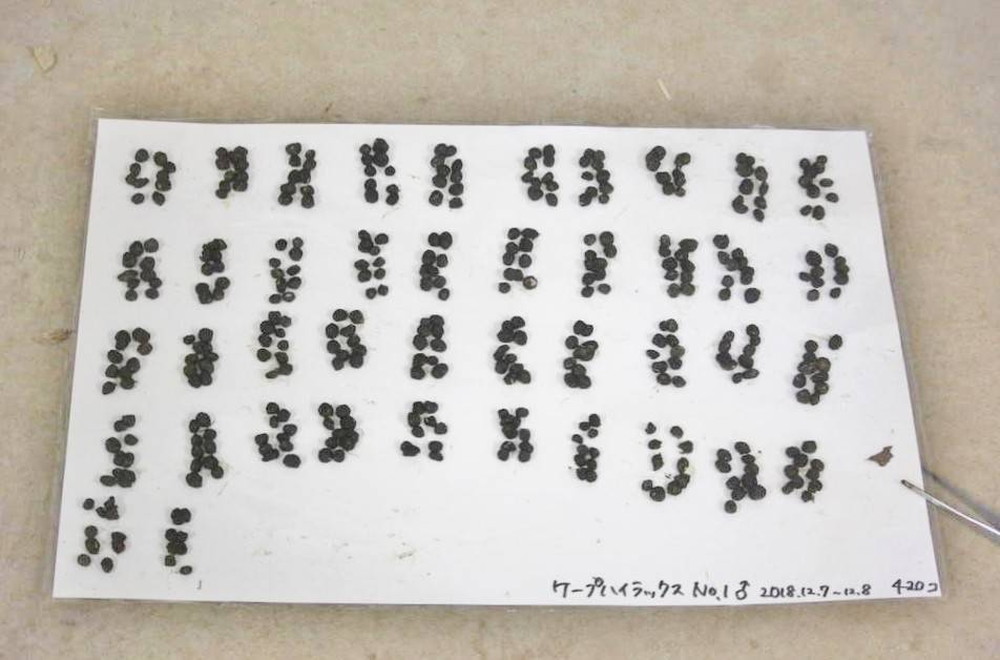 ケープハイラックス No.1♂ 2018.12.7~12.8 420コ